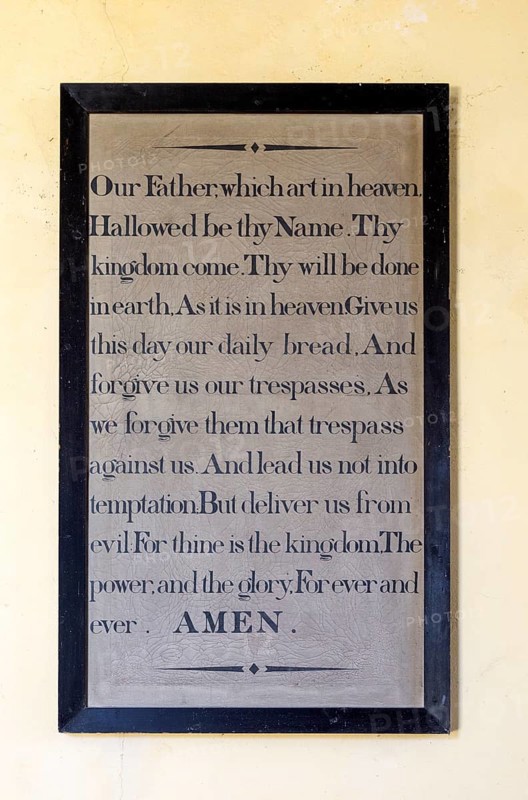 Our Father, which art in heaven,
Hallowed be thy Name. Thy
kingdom come. Thy will be done
in earth, As it is in heaven. Give us
this day our daily bread, And
forgive us our trespasses, As
we forgive them that trespass
against us. And lead us not into
temptation. But deliver us from
evil: For thine is the kingdom, The
power, and the glory, For ever and
ever. AMEN.